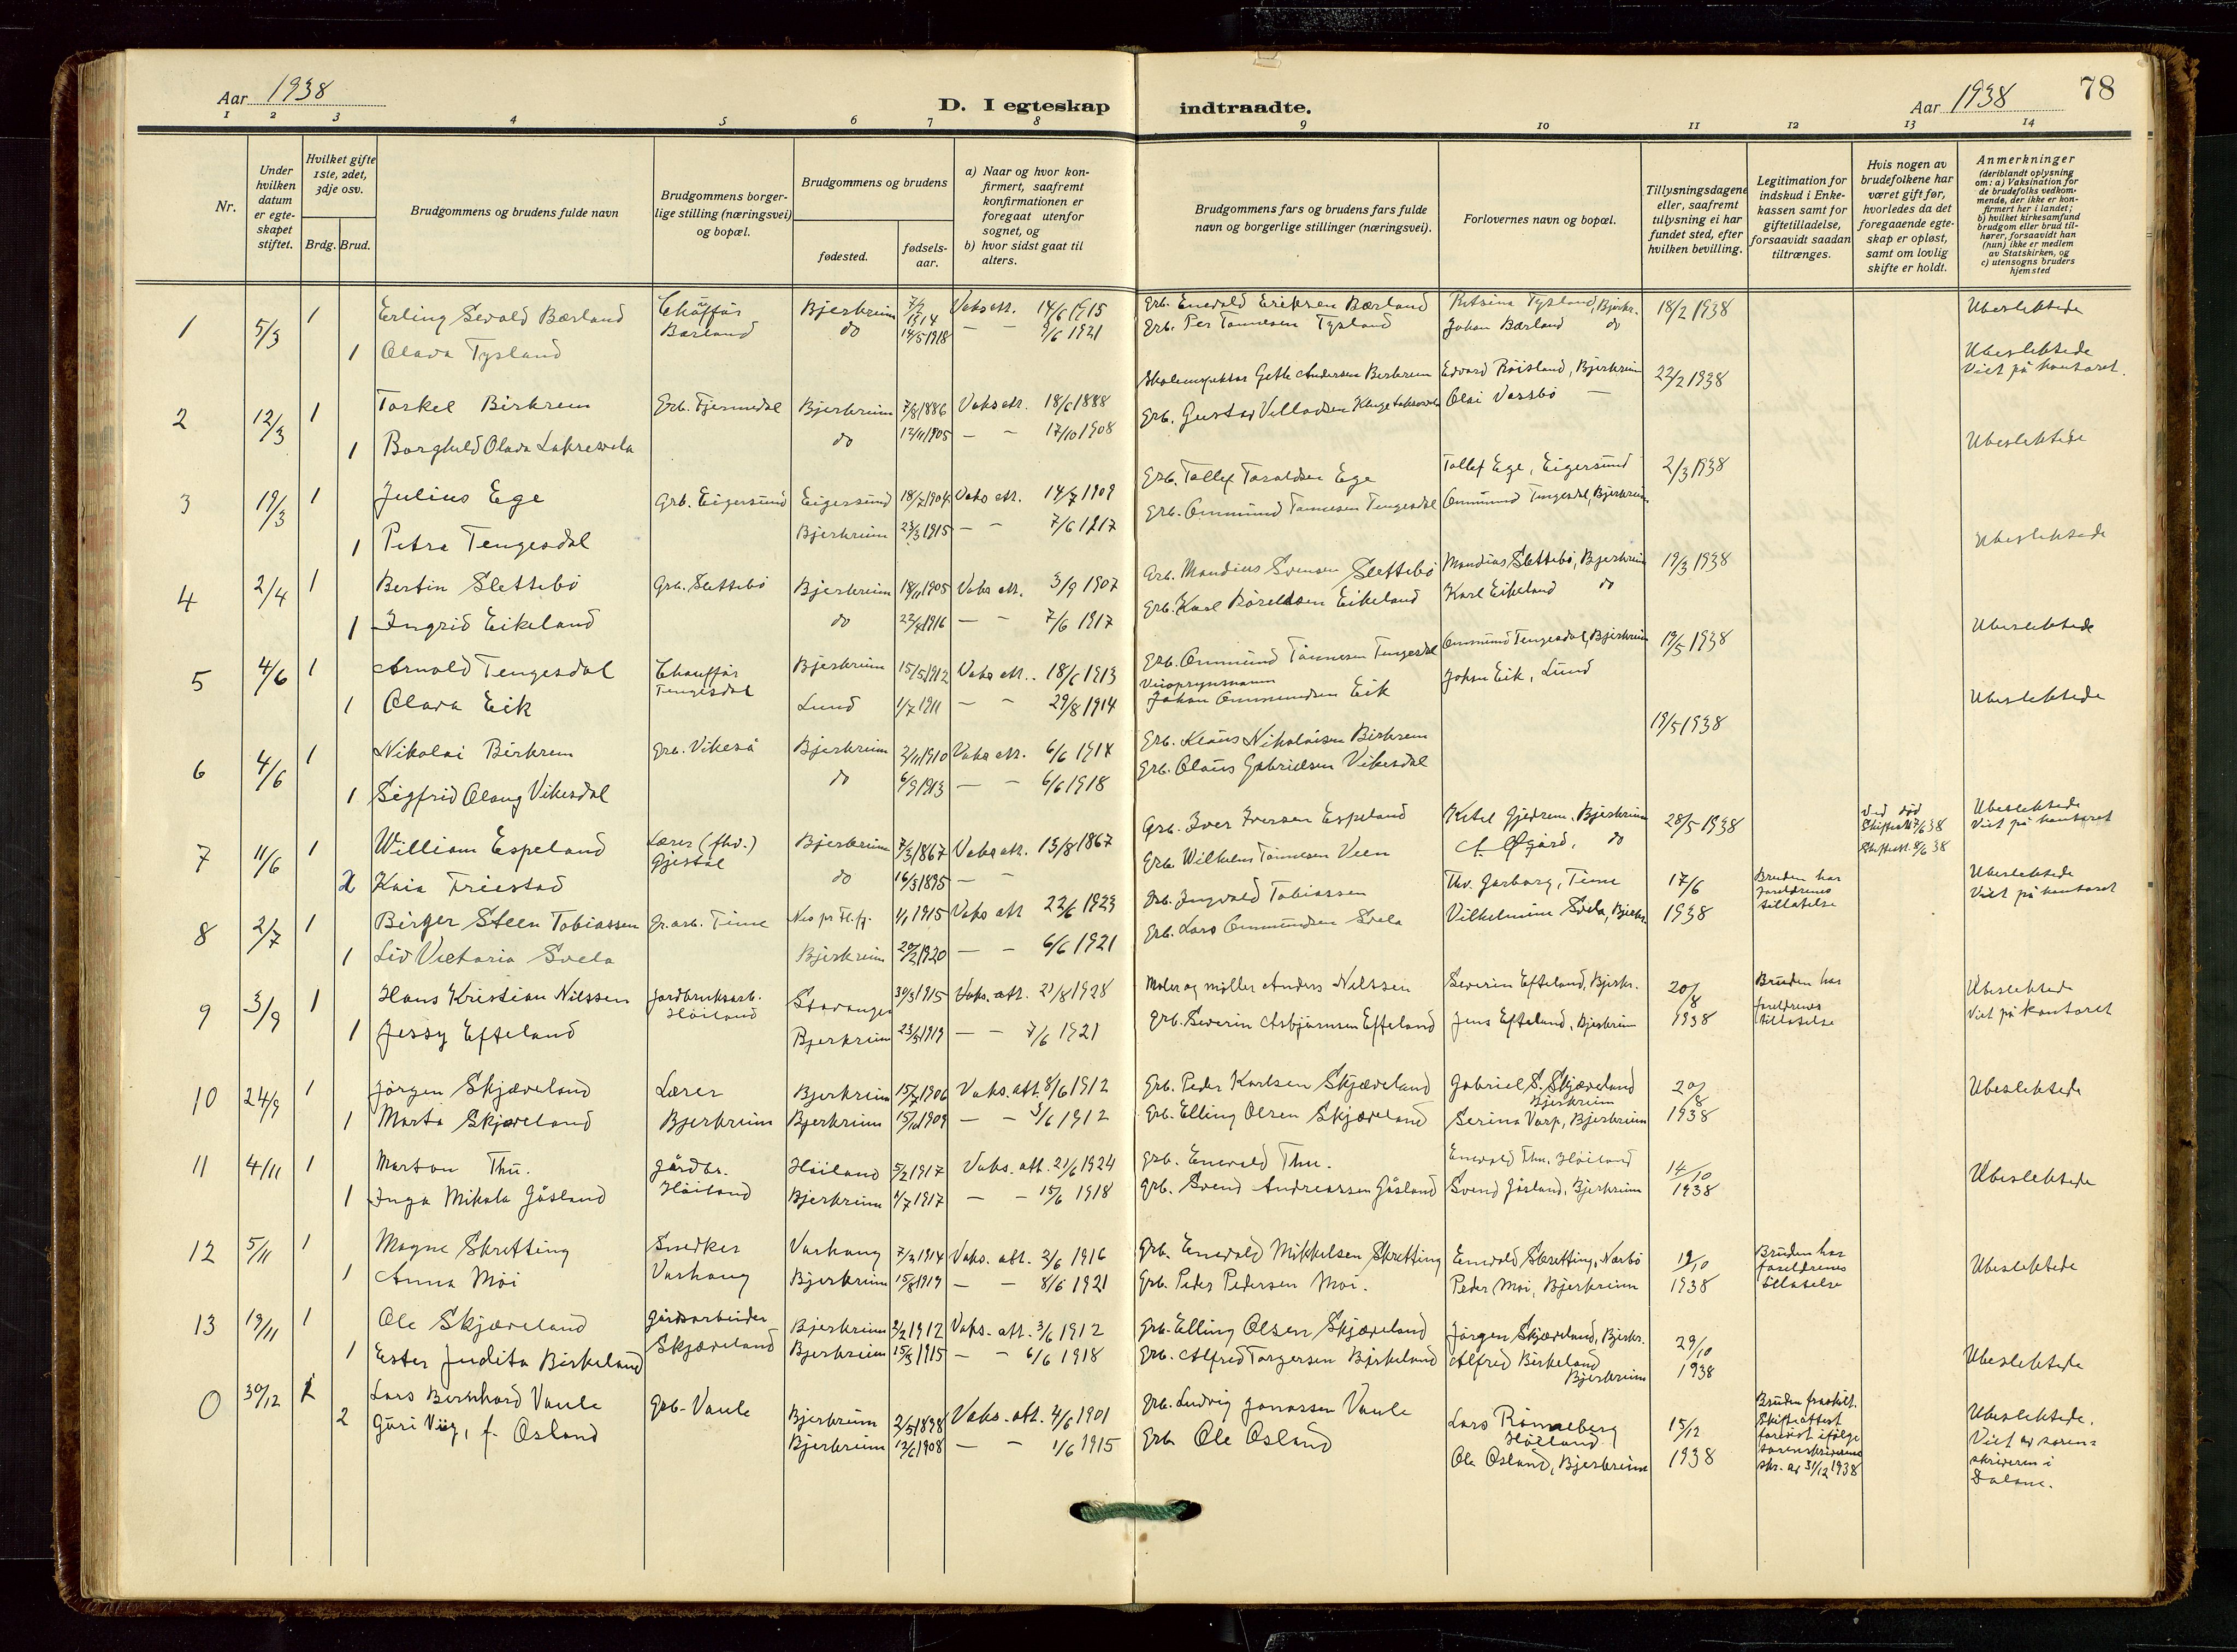 Aar 1938
D. I egteskap indtraadte.
Aar 1938
78
1 2 3 4 5 6 7 8 9 10 11 12 13 14
Nr.
Under hvilken datum er egteskapet stiftet.
Hvilket gifte 1ste, 2det, 3dje osv.
Brdg. Brud.
Brudgommens og brudens fulde navn
Brudgommens borgerlige stilling (næringsvei) og bopæl.
Brudgommens og brudens
fødested.
fødselsaar.
a) Naar og hvor konfirmert, saafremt konfirmationen er foregaat utenfor sognet, og
b) hvor sidst gaat til alters.
Brudgommens fars og brudens fars fulde navn og borgerlige stillinger (næringsvei).
Forlovernes navn og bopæl.
Tillysningsdagene eller, saafremt tillysning ei har fundet sted, efter hvilken bevilling.
Legitimation for indskud i Enkekassen samt for giftetilladelse, forsaavidt saadan tiltrænges.
Hvis nogen av brudefolkene har været gift før, hvorledes da det foregaaende egteskap er opløst, samt om lovlig skifte er holdt.
Anmerkninger (deriblandt oplysning om: a) Vaksination for de brudefolks vedkommende, der ikke er konfirmert her i landet; b) hvilket kirkesamfund brudgom eller brud tilhører, forsaavidt han (hun) ikke er medlem av Statskirken, og c) utensogns bruders hjemsted
1 5/3 1 Erling Sevald Bærland Chauffør Bjerkreim 7/2 1914 Vaks att. 14/6 1915 Grb. Enevald Eriksen Bærland Tysland, Bjerkr. 18/2 1938 Ubeslektede
1 Olava Tysland Bærland do 14/5 1918 — — 9/6 1921 Grb. Per Tønnesen Tysland Johan Bærland do
2 12/3 1 Torkel Birkrem Grb. Fjermedal Bjerkreim 7/8 1886 Vaks att. 18/6 1888 Andersen Berkrem Edvard Røisland, Bjerkreim 22/2 1938 Ubeslektede Viet på kontoret.
1 Borghild Olava Laksesvela do 12/11 1905 — — 17/10 1908 Grb. Gustav Villadsen Olai Vassbø —
3 19/3 1 Julius Ege Grb. Eigersund Eigersund 18/2 1904 Vaks att. 14/7 1909 Grb. Tollef Taraldsen Ege Tollef Ege, Eigersund 2/3 1938 Ubeslektede
1 Petra Tengesdal Bjerkreim 23/3 1915 — — 7/6 1917 Grb. Ommund Tønnesen Tengesdal Ommund Tengesdal, Bjerkreim
4 2/4 1 Bertin Slettebø Grb. Slettebø Bjerkreim 18/11 1905 Vaks att. 3/9 1907 Grb. Mandius Svensen Slettebø Mandius Slettebø, Bjerkreim 19/3 1938 Ubeslektede
1 Ingrid Eikeland do 22/4 1916 — — 7/6 1917 Grb. Karl Eikeland Karl Eikeland do
5 4/6 1 Arnold Tengesdal Chauffør Tengesdal Bjerkreim 15/5 1912 Vaks att. 18/6 1913 Grb. Ommund Tønnesen Tengesdal Ommund Tengesdal, Bjerkreim 19/5 1938 Ubeslektede
1 Olava Eik Lund 1/7 1911 — — 29/8 1914 Johan Ommundsen Eik Johan Eik, Lund
6 4/6 1 Nikolai Birkrem Grb. Vikeså Bjerkreim 2/11 1910 Vaks att. 6/6 1914 Grb. Klaus Nikolaisen Birkrem 19/5 1938 Ubeslektede
1 Sigfrid Olaug Vikesdal do 6/9 1913 — — 6/6 1918 Grb. Olaus Gabrielsen Vikesdal
7 11/6 1 William Espeland Lærer (fhv.) Gjestal Bjerkreim 7/3 1867 Vaks att. 13/8 1867 Grb. Iver Iversen Espeland Ketil Gjedrem, Bjerkreim 28/5 1938 ved død Ubeslektede Viet på kontoret
2 Kaia Friestad do 16/3 1895 — — Grb. Wilhelm Tønnesen Veen do
8 2/7 1 Birger Steen Tobiassen Gr.arb. Time 1/1 1915 Vaks att 22/6 1923 Grb. Ingvald Tobiassen Thv. Garborg, Time 17/6 1938 Bruden har foreldrenes tillatelse Ubeslektede Viet på kontoret
1 Liv Victoria Svela Bjerkreim 20/2 1920 — — 6/6 1921 Grb. Lars Ommundsen Svela Vilhelmine Svela, Bjerkr.
9 3/9 1 Hans Kristian Nilssen Jordbruksarb. Høiland Stavanger 30/3 1915 Vaks. att. 21/8 1928 Maler og møller Anders Nilssen Severin Efteland, Bjerkr. 20/8 1938 Bruden har foreldrenes tillatelse Ubeslektede Viet på kontoret
1 Jessy Efteland Bjerkreim 23/5 1919 — — 7/6 1921 Grb. Severin Asbjørnsen Efteland Jens Efteland, Bjerkreim
10 24/9 1 Jørgen Skjæveland Lærer Bjerkreim 15/7 1906 Vaks. att. 8/6 1912 Grb. Peder Karlsen Skjæveland Gabriel S. Skjæveland Bjerkreim 20/8 1938 Ubeslektede
1 Marta Skjæveland Bjerkreim Bjerkreim 15/10 1909 — — 3/6 1912 Grb. Elling Olsen Skjæveland Serina Varp, Bjerkreim
11 4/11 1 Marton Thu. Gårdbr. Høiland Høiland 5/2 1917 Vaks. att. 21/6 1924 Grb. Enevald Thu. Enevald Thu, Høiland 14/10 1938 Ubeslektede
1 Inga Mikala Gåsland Bjerkreim 1/7 1917 — — 15/6 1918 Grb. Svend Andreassen Gåsland Svend Gåsland, Bjerkreim
12 5/11 1 Magne Skretting Snedker Varhaug Varhaug 7/3 1914 Vaks. att. 2/6 1916 Grb. Enevald Mikkelsen Skretting Enevald Skretting, Nærbø 19/10 1938 Bruden har foreldrenes tillatelse Ubeslektede
1 Anna Moi Bjerkreim 15/8 1919 — — 8/6 1921 Grb. Peder Pedersen Moi. Peder Moi, Bjerkreim
13 19/11 1 Ole Skjæveland Gårdsarbeider Skjæveland Bjerkreim 2/2 1912 Vaks. att. 3/6 1912 Grb. Elling Olsen Skjæveland Jørgen Skjæveland, Bjerkr. 29/10 1938 Ubeslektede
1 Ester Judita Birkeland Bjerkreim 15/3 1915 — — 6/6 1918 Grb. Alfred Torgersen Birkeland Alfred Birkeland Bjerkreim
0 30/12 1 Lars Bernhard Vaule Grb. Vaule Bjerkreim 2/5 1898 Vaks. att. 4/6 1901 Grb. Ludvig Jonassen Vaule Lars Høiland 15/12 1938 Bruden fraskilt. Skifteattest forevist ifølge sorenskriverens skr. av 31/12 1938 Ubeslektede. Viet av sorenskriveren i Dalane.
2 Guri f. Osland Bjerkreim 12/6 1908 — — 1/6 1915 Grb Ole Osland Ole Osland, Bjerkreim